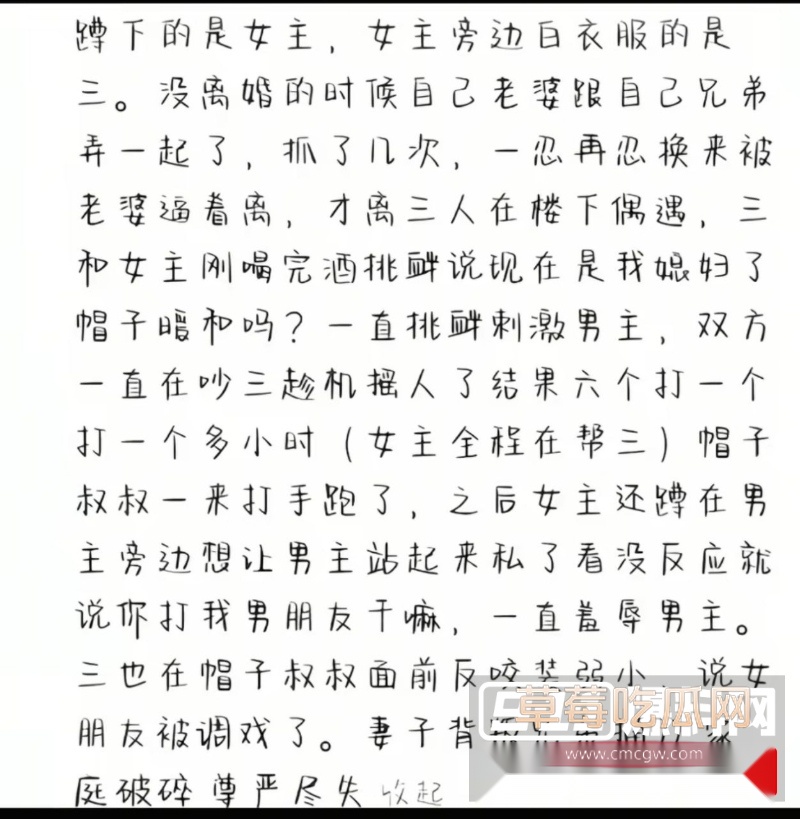 蹲下的是女主，女主旁边白衣服的是
三。没离婚的时候自己老婆跟自己兄弟
弄一起了，抓了几次，一忍再忍换来被
老婆逼着离，才离三人在楼下偶遇，三
和女主刚喝完酒挑衅说现在是我媳妇了
帽子暖和吗？一直挑衅刺激男主，双方
一直在吵三趁机摇人了结果六个打一个
打一个多小时（女主全程在帮三）帽子
叔叔一来打手跑了，之后女主还蹲在男
主旁边想让男主站起来私了看没反应就
说你打我男朋友干嘛，一直羞辱男主。
三也在帽子叔叔面前反咬装弱小，说女
朋友被调戏了。妻子背
庭破碎尊严尽失 收起
草莓吃瓜网
www.cmcgw.com